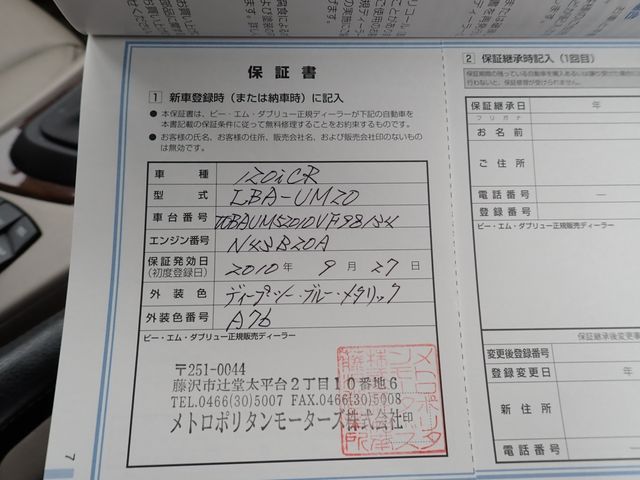 保証書
1 新車登録時（または納車時）に記入
● 本保証書は、ビー・エム・ダブリュー正規ディーラーが下記の自動車を
本書記載の保証条件に従って無料修理することをお約束するものです。
● お客様の氏名、お客様の住所、販売会社名、および販売会社印のないもの
は無効です。
車種 120iCR
型式 LBA-UM20
車台番号
エンジン番号 N43B20A
保証発効日
(初度登録日) 2010年 9月 27日
外装色 ディープ・シー・ブルー・メタリック
外装色番号 A76
ビー・エム・ダブリュー正規販売ディーラー
〒251-0044
藤沢市辻堂太平台２丁目１０番地６
TEL.0466(30)5007 FAX.0466(30)5008
メトロポリタンモーターズ株式会社印
7
2 保証継承時記入（1回目）
保証継承日 年
フリガナ
お名前
ご住所
電話番号 —
登録番号
ビー・エム・ダブリュー正規販売ディー
保証継承後変更事
変更後登録番号
登録変更日 年
新住所
電話番号 —